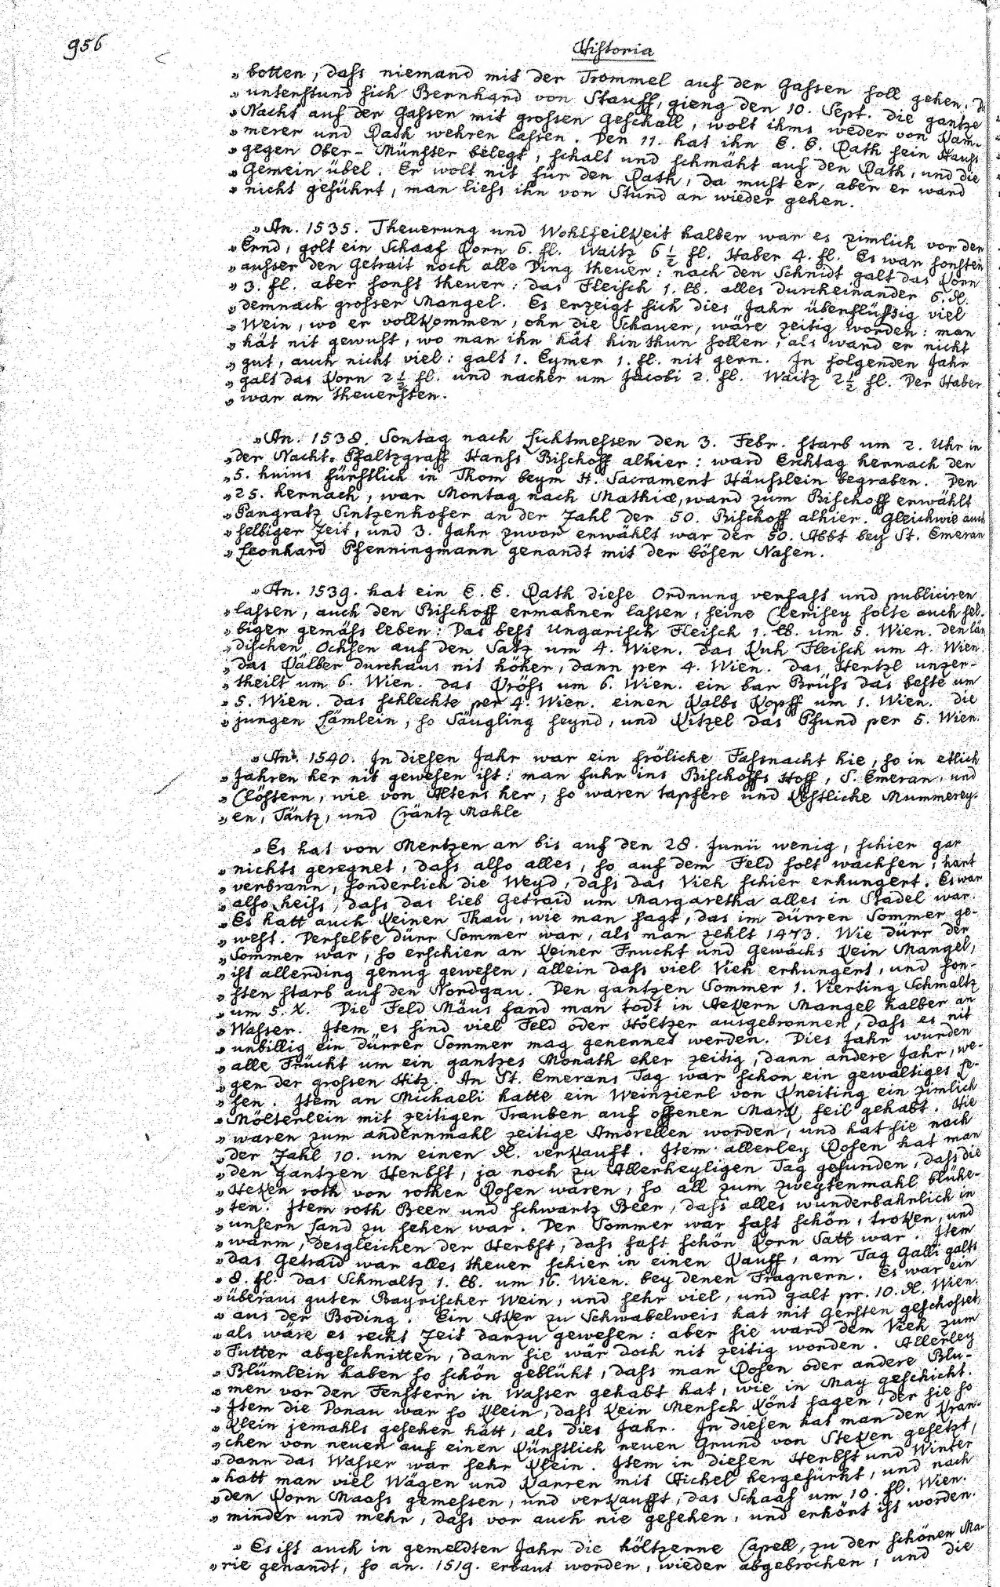 956
Historia
„botten, dass niemand mit der Trommel auf der Gassen soll gehen. Da
„unterstund sich Bernhard von Stauff, gieng den 10. Sept. die gantze
„Nacht auf der Gassen mit grossen Geschall, wolt ihms weder von Cam-
„merer und Rath wehren lassen. Den 11. hat ihn E. E. Rath sein Hauss
„gegen Ober-Münster belegt, schalt und schmäht auf den Rath, und die
„Gemein übel. Er wolt nit für den Rath, da must er, aber er ward
„nicht geführt, man liess ihn von Stund an wieder gehen.
„An. 1535. Theuerung und Wohlfeilkeit halber war es zimlich vor der
„Ernd, golt ein Schaaf Korn 6. fl. Waitz 6 1/2 fl. Haber 4. fl. Es war sonsten
„ausser den Getrait noch alle Ding theuer: nach den Schnidt galt das Korn
„3. fl. aber sonst theuer: das Fleisch 1. lb. alles durcheinander 6. X.
„demnach grosser Mangel. Es erzeigt sich dies Jahr überflüssig viel
„Wein, wo er vollkommen, ohn die Schauer, wäre zeitig worden: man
„hät nit gewust, wo man ihn hät hin thun sollen, als ward er nicht
„gut, auch nicht viel: galt 1. Eymer 1. fl. nit gern. In folgenden Jahr
„galt das Korn 2 1/2 fl. und nacher um Jacobi 2. fl. Waitz 2 1/2 fl. Der Haber
„war am theuersten.
„An. 1538. Sontag nach Lichtmessen den 3. Febr. starb um 2. Uhr in
„der Nacht Pfaltzgraff Hanss Bischoff alhier: ward Erchtag hernach den
„5. huius fürstlich in Thom beym H. Sacrament Häusslein begraben. Den
„25. hernach, war Montag nach Mathiæ, ward zum Bischoff erwählt
„Pangratz Sintzenhofer an der Zahl der 50. Bischoff alhier. Gleichwie auch
„selbiger Zeit, und 3. Jahr zuvor erwählt war der 50. Abbt bey St. Emeran
„Leonhard Pfenningmann genandt mit der bösen Nasen.
„An. 1539. hat ein E. E. Rath diese Ordnung verfast und publiciren
„lassen, auch den Bischoff ermahnen lassen, seine Clerisey solte auch sel-
„biger gemäss leben: Das best Ungarisch Fleisch 1. lb. um 5. Wien. den län-
„dischen Ochsen auf den Satz um 4. Wien. das Kuh Fleisch um 4. Wien.
„das Kälber durchaus nit höher, dann per 4. Wien. das Hentzl unzer-
„theilt um 6. Wien. das Kröss um 6. Wien. ein bar Brüss das beste um
„5. Wien. das schlechte per 4. Wien. einen Kalbs Kopff um 1. Wien. die
„jungen Lämlein, so Säugling seynd, und Kitzel das Pfund per 5. Wien.
„An. 1540. In diesen Jahr war ein fröliche Fassnacht hie, so in etlich
„Jahren her nit gewesen ist: man fuhr ins Bischoffs Hoff, S. Emeran, und
„Clöstern, wie von Altens her, so waren tapfere und köstliche Mummerey-
„en, Täntz, und Cräntz Mahle
„Es hat von Mertzen an bis auf den 28. Junii wenig, schier gar
„nichts geregnet, dass also alles, so auf dem Feld solt wachsen, hart
„verbrann, sonderlich die Weyd, dass das Vieh schier erhungert. Es war
„also heiss, dass das lieb Getraid um Margaretha alles in Stadel war.
„Es hatt auch keinen Thau, wie man sagt, das im dürren Sommer ge-
„west. Derselbe dürr Sommer war, als man zehlt 1473. Wie dürr der
„Sommer war, so erschien an keiner Frucht und Gewächs kein Mangel,
„ist allerding genug gewesen, allein dass viel Vieh erhungert, und son-
„sten starb auf den Nordgau. Den gantzen Sommer 1. Vierting Schmaltz
„um 5. X. Die Feld Mäus fand man todt in Aekern Mangel halber an
„Wasser. Item es sind viel Feld oder Höltzer ausgebronnen, dass es nit
„unbillig ein dürrer Sommer mag genennet werden. Dies Jahr wurden
„alle Frücht um ein gantzes Monath eher zeitig, dann andere Jahr, we-
„gen der grossen Hitz. An St. Emerans Tag war schon ein gewaltiges Le-
„sen. Item an Michaeli hatte ein Weinzierl von Kneiting ein zimlich
„Mölterlein mit zeitigen Trauben auf offenen Mark feil gehabt. Hie
„waren zum andernmahl zeitige Amorellen worden, und hat sie nach
„der Zahl 10. um einen X. verkauft. Item allerley Rosen hat man
„den gantzen Herbst, ja noch zu Allerheyligen Tag gefunden, dass die
„Heken roth von rothen Rosen waren, so all zum zweytenmahl blühe-
„ten. Item roth Beer und schwartz Beer, dass alles wunderbahrlich in
„unsern Land zu sehen war. Der Sommer war fast schön, troken, und
„warm, desgleichen der Herbst, dass fast schön Korn Satt war. Item
„das Getraid war alles theuer schier in einen Kauff, am Tag Galli galts
„8. fl. das Schmaltz 1. lb. um 16. Wien. bey denen Fragnern. Es war ein
„überaus guter Bayrischer Wein, und sehr viel, und galt pr. 10. X. Wien.
„aus der Boding. Ein Aker zu Schwabelweis hat mit Gersten geschosset,
„als wäre es recht Zeit darzu gewesen: aber sie ward dem Vieh zum
„Futter abgeschnitten, dann sie wär doch nit zeitig worden. Allerley
„Blümlein haben so schön geblüht, dass man Rosen oder andere Blu-
„men vor den Fenstern in Wasser gehabt hat, wie in May geschicht.
„Item die Donau war so klein, dass kein Mensch könt sagen, der sie so
„klein jemahls gesehen hätt, als dies Jahr. In diesen hat man den Kran-
„chen von neuen auf einen künstlich neuen Grund von Steken gesetzt,
„dann das Wasser war sehr klein. Item in diesen Herbst und Winter
„hatt man viel Wägen und Karren mit Aichel hergeführt, und nach
„den Korn Maass gemessen, und verkaufft, das Schaaf um 10. fl. Wien.
„minder und mehr, dass vor auch nie gesehen, und erhört ist worden.
„Es ist auch in gemeldten Jahr die höltzerne Capell, zu der schönen Ma-
„rie genandt, so an. 1519. erbaut worden, wieder abgebrochen, und die